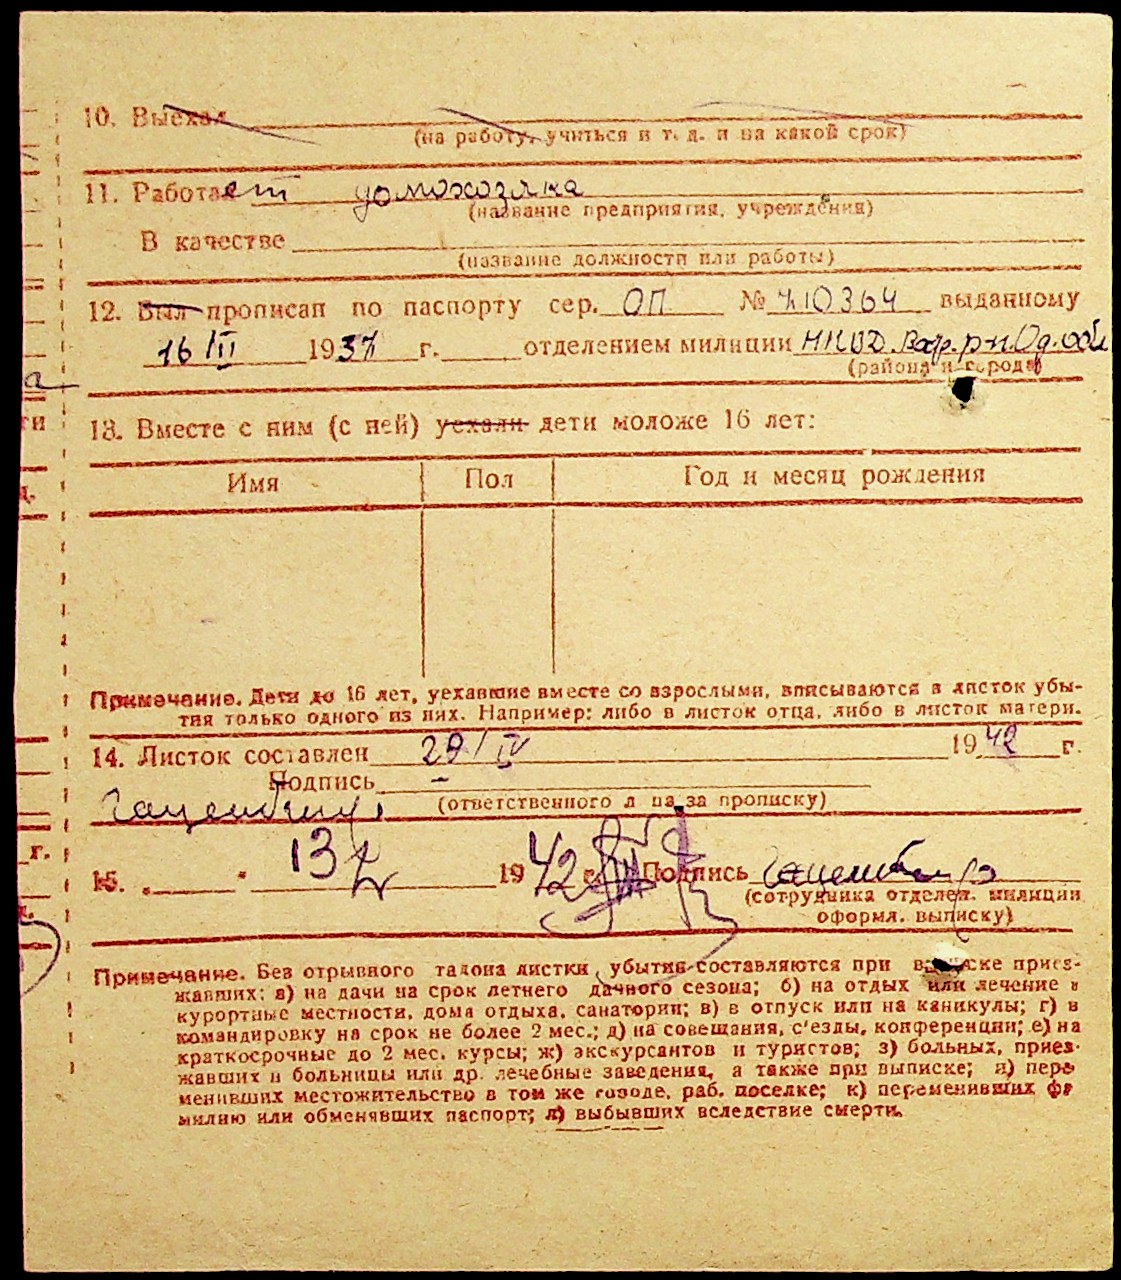 10. Выехал
(на работу, учиться и т. д. и на какой срок)
11. Работает домохозяка
(название предприятия, учреждения)
В качестве
(название должности или работы)
12. Был прописан по паспорту сер. ОП № 710364 выданному
16/III 1937 г. отделением милиции НКВД р-н. Од. обл
(района и города)
13. Вместе с ним (с ней) уехали дети моложе 16 лет:
Имя Пол Год и месяц рождения
Примечание. Дети до 16 лет, уехавшие вместе со взрослыми, вписываются в листок убы-
тия только одного из них. Например: либо в листок отца, либо в листок матери.
14. Листок составлен 29/IV 1942 г.
Подпись
(ответственного лица за прописку)
г.
13
15. " " 1942 г. Подпись
(сотрудника отделен. милиции
оформл. выписку)
Примечание. Без отрывного талона листки убытия составляются при выписке приез-
жавших: а) на дачи на срок летнего дачного сезона; б) на отдых или лечение в
курортные местности, дома отдыха, санатории; в) в отпуск или на каникулы; г) в
командировку на срок не более 2 мес.; д) на совещания, с'езды, конференции; е) на
краткосрочные до 2 мес. курсы; ж) экскурсантов и туристов; з) больных, приез-
жавших в больницы или др. лечебные заведения, а также при выписке; и) пере
менивших местожительство в том же городе, раб. поселке; к) переменивших фа
милию или обменявших паспорт; л) выбывших вследствие смерти.